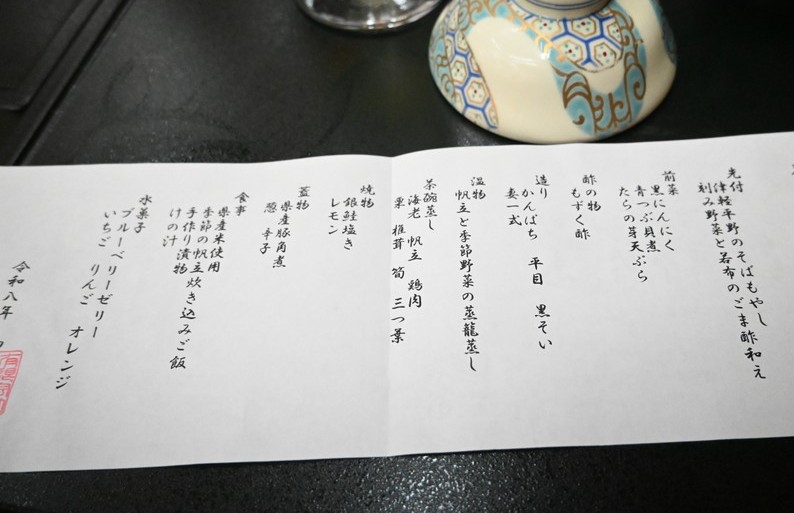 先付
津軽平野のそばもやし
刻み野菜と若布のごま酢和え
前菜
黒にんにく
青つぶ貝煮
たらの芽天ぷら
酢の物
もずく酢
造り
かんぱち 平目 黒そい
妻一式
温物
帆立と季節野菜の蒸籠蒸し
茶碗蒸し
海老 帆立 鶏肉
栗 椎茸 筍 三つ葉
焼物
銀鮭塩焼き
レモン
蓋物
県産豚角煮
葱 辛子
食事
県産米使用
季節の帆立炊き込みご飯
手作り漬物
けの汁
水菓子
ブルーベリーゼリー
いちご りんご オレンジ
令和八年